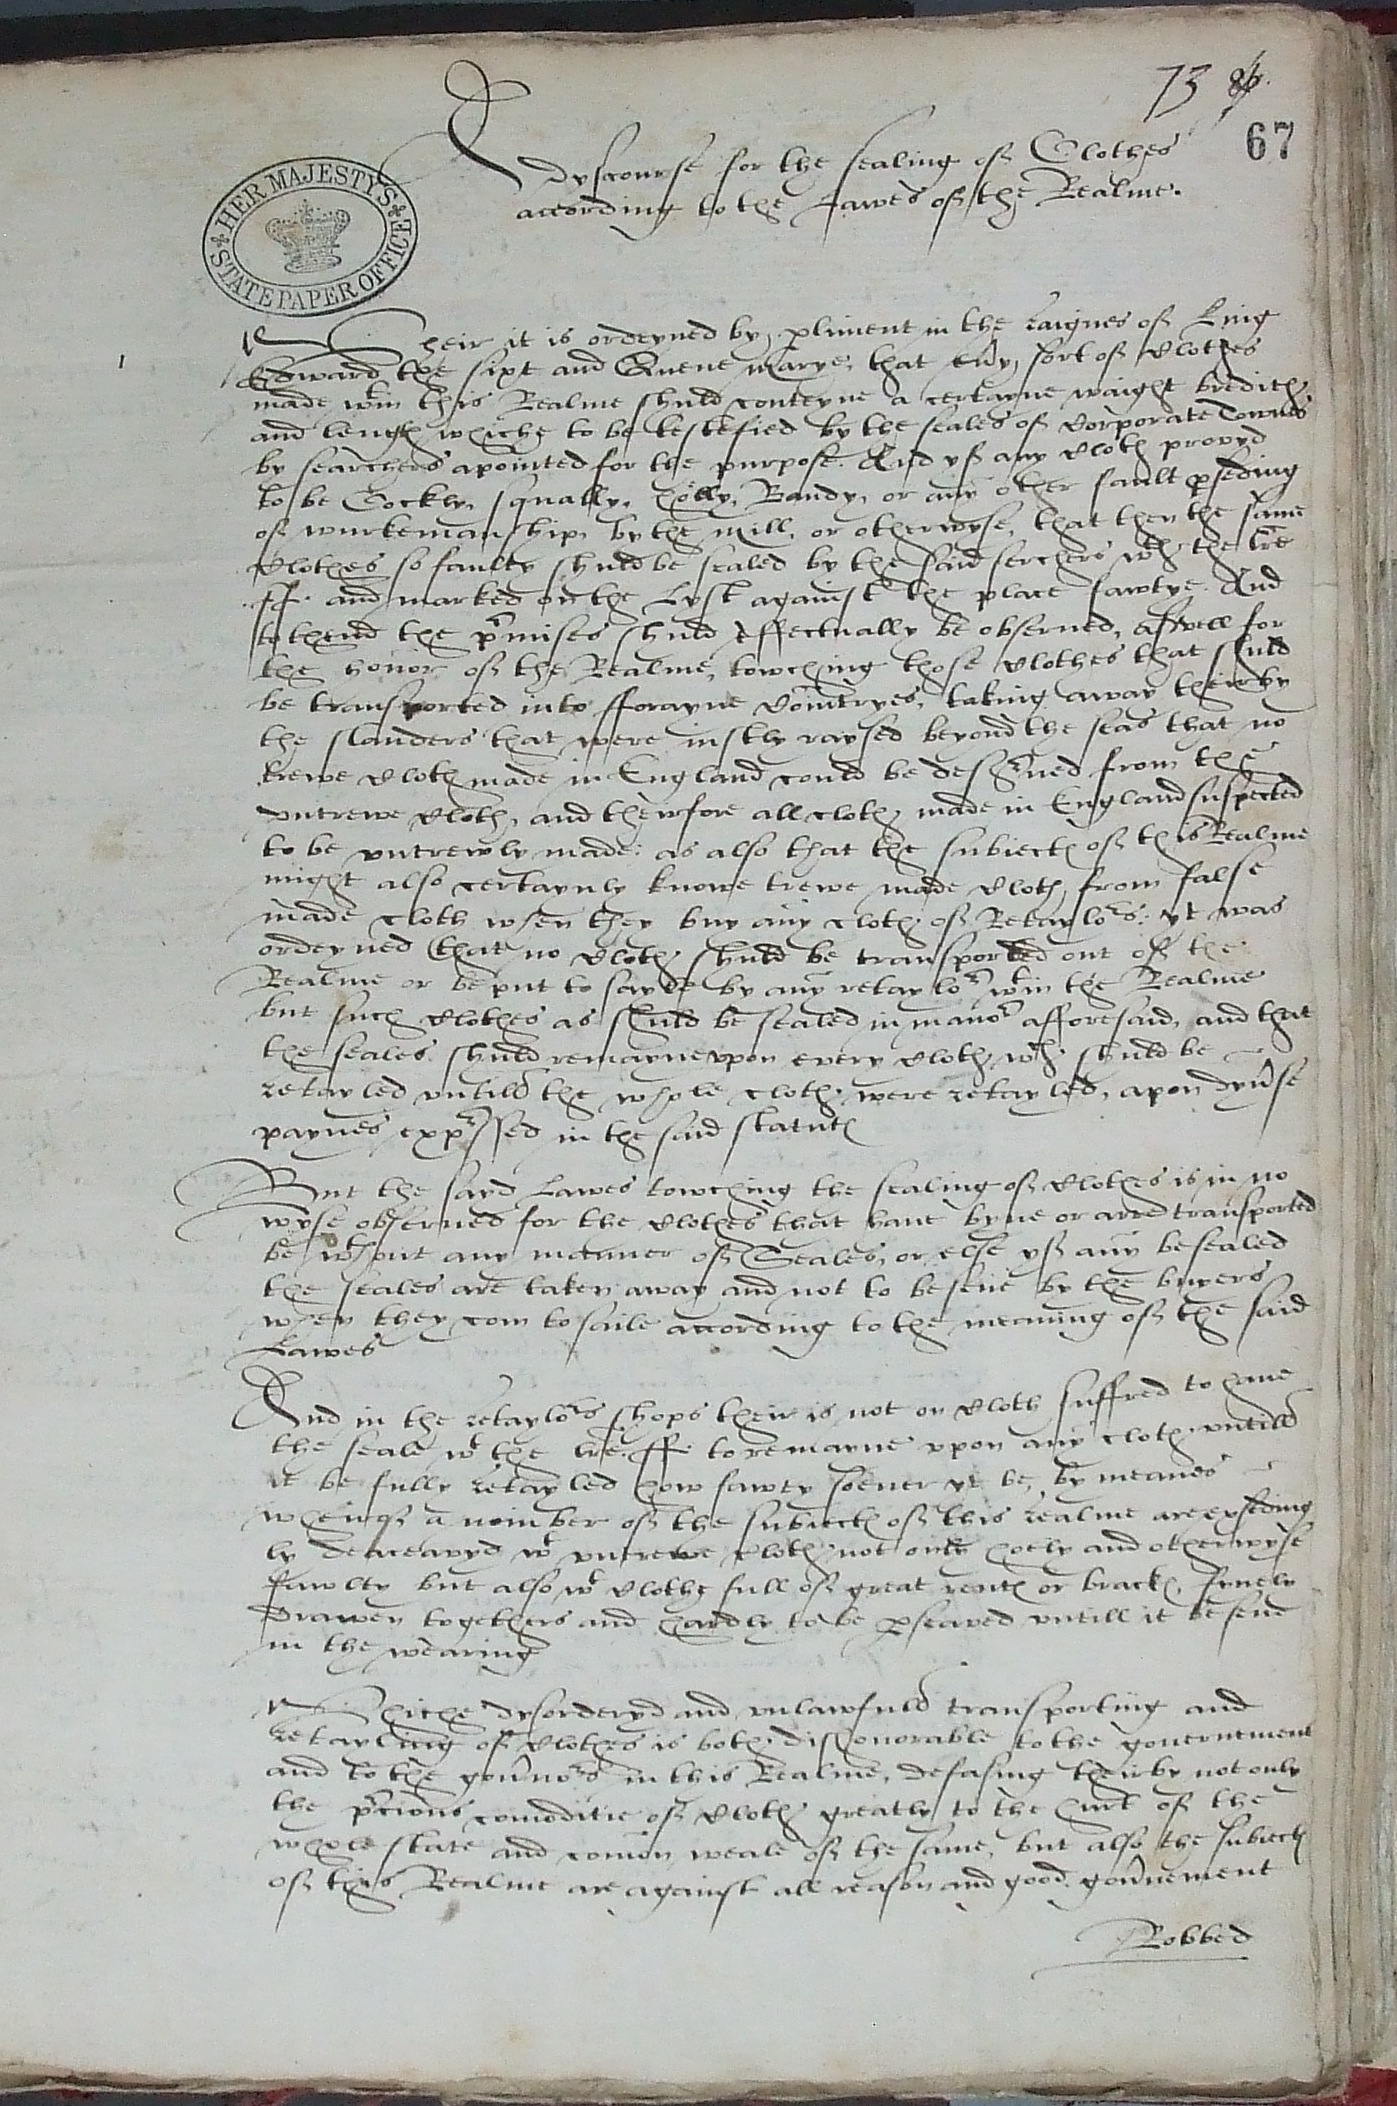 73 86.
67
A dyscourse for the sealing of Clothes
according to the Lawes of the Realme.
HER MAJESTY'S
STATE PAPER OFFICE
Wheir it is ordeyned by pliment in the raignes of King
Edward the sixt and Quene Marye, that eu'y sort of clothes
made wtin this Realme shuld conteyne a certayne waight bredith
and length whiche to be testefied by the seales of Corporate Townes
by searchers apointed for the purpose. And yf any cloth provyd
to be Cockly, squally, holly, Bandy, or any other fault pseding
of wurkemanship, by the mill, or otherwyse, that then the same
clothes so faulty shuld be sealed by the said serchers wth the lre
.ff. and marked on the Lyst against the place fawtye. And
to thend the pmises shuld effectually be obserued, aswell for
the honor of the Realme, towching those clothes that shuld
be transported into fforayne Countryes, taking away theirby
the slanders that were iustly raysed beyond the seas that no
trewe cloth made in England could be deserned from the
vntrewe cloth, and therfore all cloth made in England suspected
to be vntrewly made: as also that the subiects of this Realme
might also certaynly knowe trewe made cloth, from false
made cloth when they buy any cloth of Retaylors: yt was
ordeyned that no cloth shuld be transported out of the
Realme or be put to sayle by any retaylor wtin the Realme
but such clothes as shuld be sealed in manor afforesaid, and that
the seales shuld remayne vpon every cloth wch shuld be
retayled vntill the whole cloth were retayled, apon dyu'se
paynes expressed in the said statuts
But the sayd Lawes towching the sealing of clothes is in no
wyse obserued for the clothes that haue byne or are transported
be wthout any manner of Seales, or else yf any be sealed
the seales are taken away and not to be sene by the buyers
when they com to saile according to the meaning of the said
Lawes
And in the retaylors shops their is not on cloth suffred to haue
the seale wt the lre .ff. to remayne vpon any cloth vntill
it be fully retayled how fawty soeuer yt be, by meanes
wheirof a nomber of the subiects of this realme are exseding
ly deceavyd wt vntrewe cloth not only holy and otherwyse
fawlty but also wt clothe full of great rents or bracks, fynely
drawen togethers and hardly to be pseaved vntill it be sene
in the wearing
Whiche dysorderyd and vnlawfull transporting and
retayling of clothes is both dishonorable to the gouernement
and to the gou'nors in this Realme, defasing theirby not only
the pcious comoditie of cloth greatly to the hurt of the
whole state and comon weale of the same, but also the subiects
of this Realme are against all reason and good gou'nement
Robbed